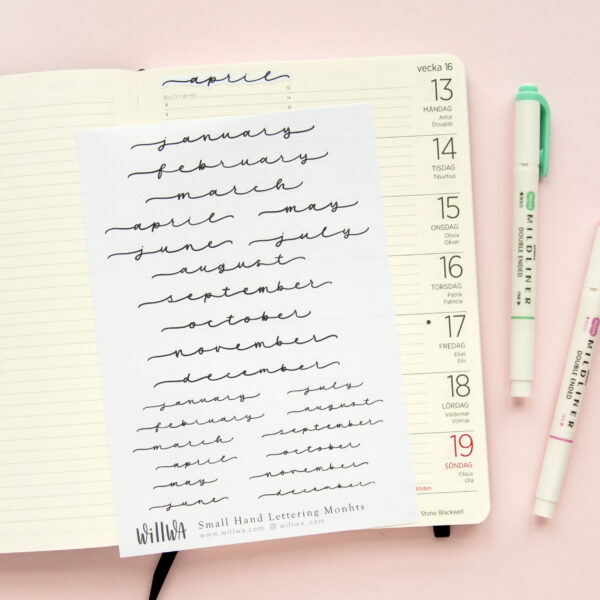 april
january
february
march
april may
june july
august
september
october
november
december
january july
february august
march september
april october
may november
june december
willwa Small Hand Lettering Monhts
www.willwa.com willwa_com
vecka 16
13
MÅNDAG
Artur
Douglas
14
TISDAG
Tiburtius
15
ONSDAG
Olivia
Oliver
16
TORSDAG
Patrik
Patricia
17
FREDAG
Elias
Elis
18
LÖRDAG
Valdemar
Volmar
19
SÖNDAG
Olaus
Ola
Stone Blackwell
MILDLINER
DOUBLE ENDED
MILDLINER
DOUBLE ENDED